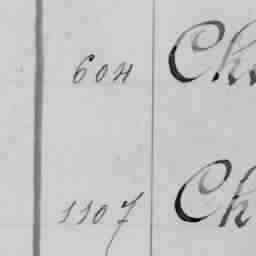 604 Ch
1107 Ch